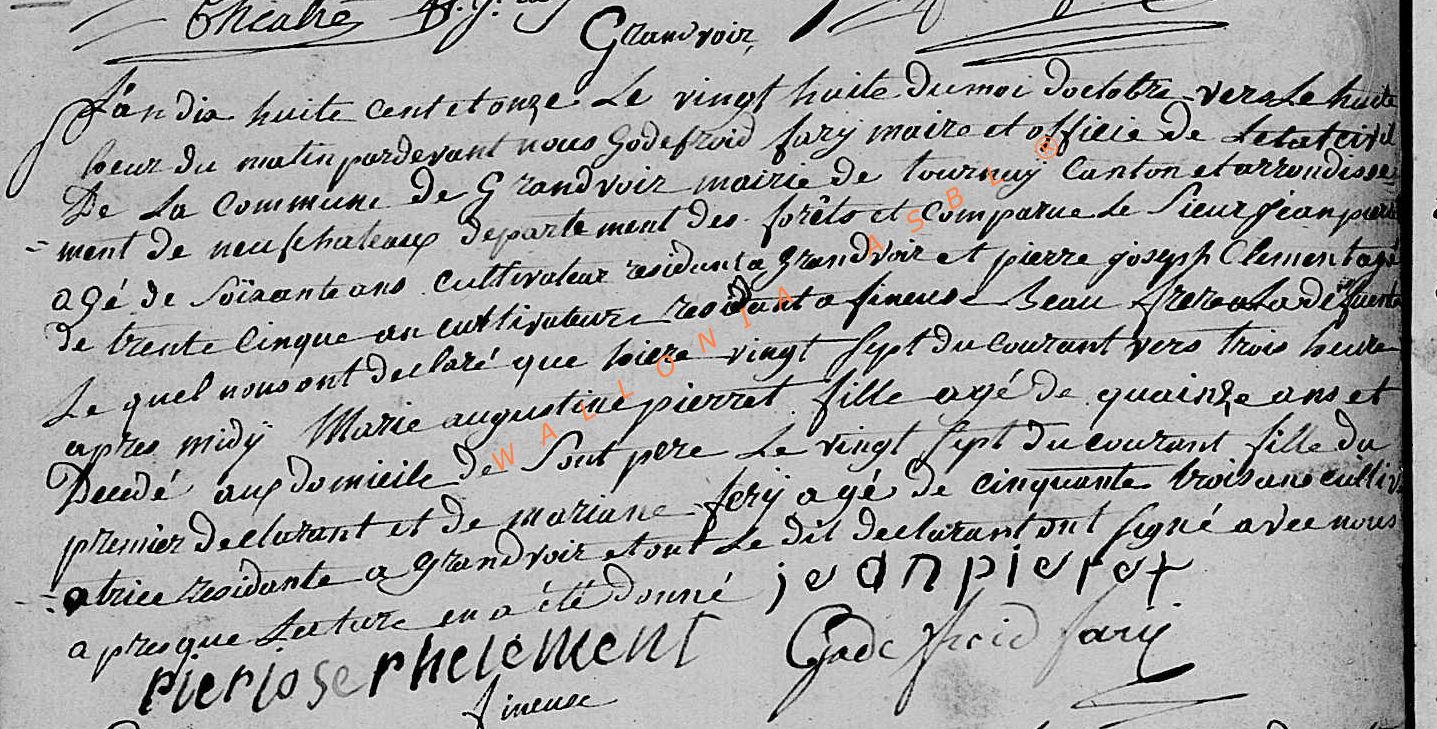 Grandvoir
L'an dix huite cent et onze Le vingt huite du moi doctobre vers Le huite
heur du matin pardevant nous Godefroid fary maire et officie de Letat civil
De La Commune de Grandvoir mairie de tournay Canton et arrondisse=
=ment de neufchateaux departement des forêts et comparue Le Sieur jean pierr
agé de Soixante ans cultivateur residant a Grandvoir et pierre joseph Clement agé
de trente cinque an cultivateur residant a fineuse Beau frere a La defuente
Le quel nous ont declaré que hiere vingt sept du courant vers trois heure
apres midÿ Marie augustine pierret fille agé de quainze ans et
Decedé aux domicile de Sont pere Le vingt sept du courant fille du
premier declarant et de mariane fery agé de cinquante trois ans cultiv
=atrice residante a Grandvoir et ont Le dit declarant ont signé avec nous
apres que Lecture en a été donné jeanpieret
pierjosephclement Godefroid fary
fineuse
WALLONIA ASBL ®